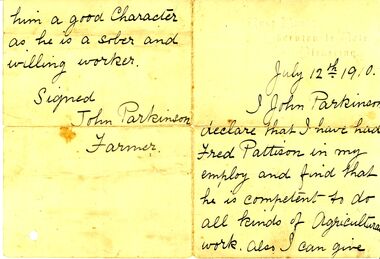 July 12th 1910.
I John Parkinson
declare that I have had
Fred Pattison in my
employ and find that
he is competent to do
all kinds of Agricultural
work. also I can give
him a good Character
as he is a sober and
willing worker.
Signed
John Parkinson
Farmer.